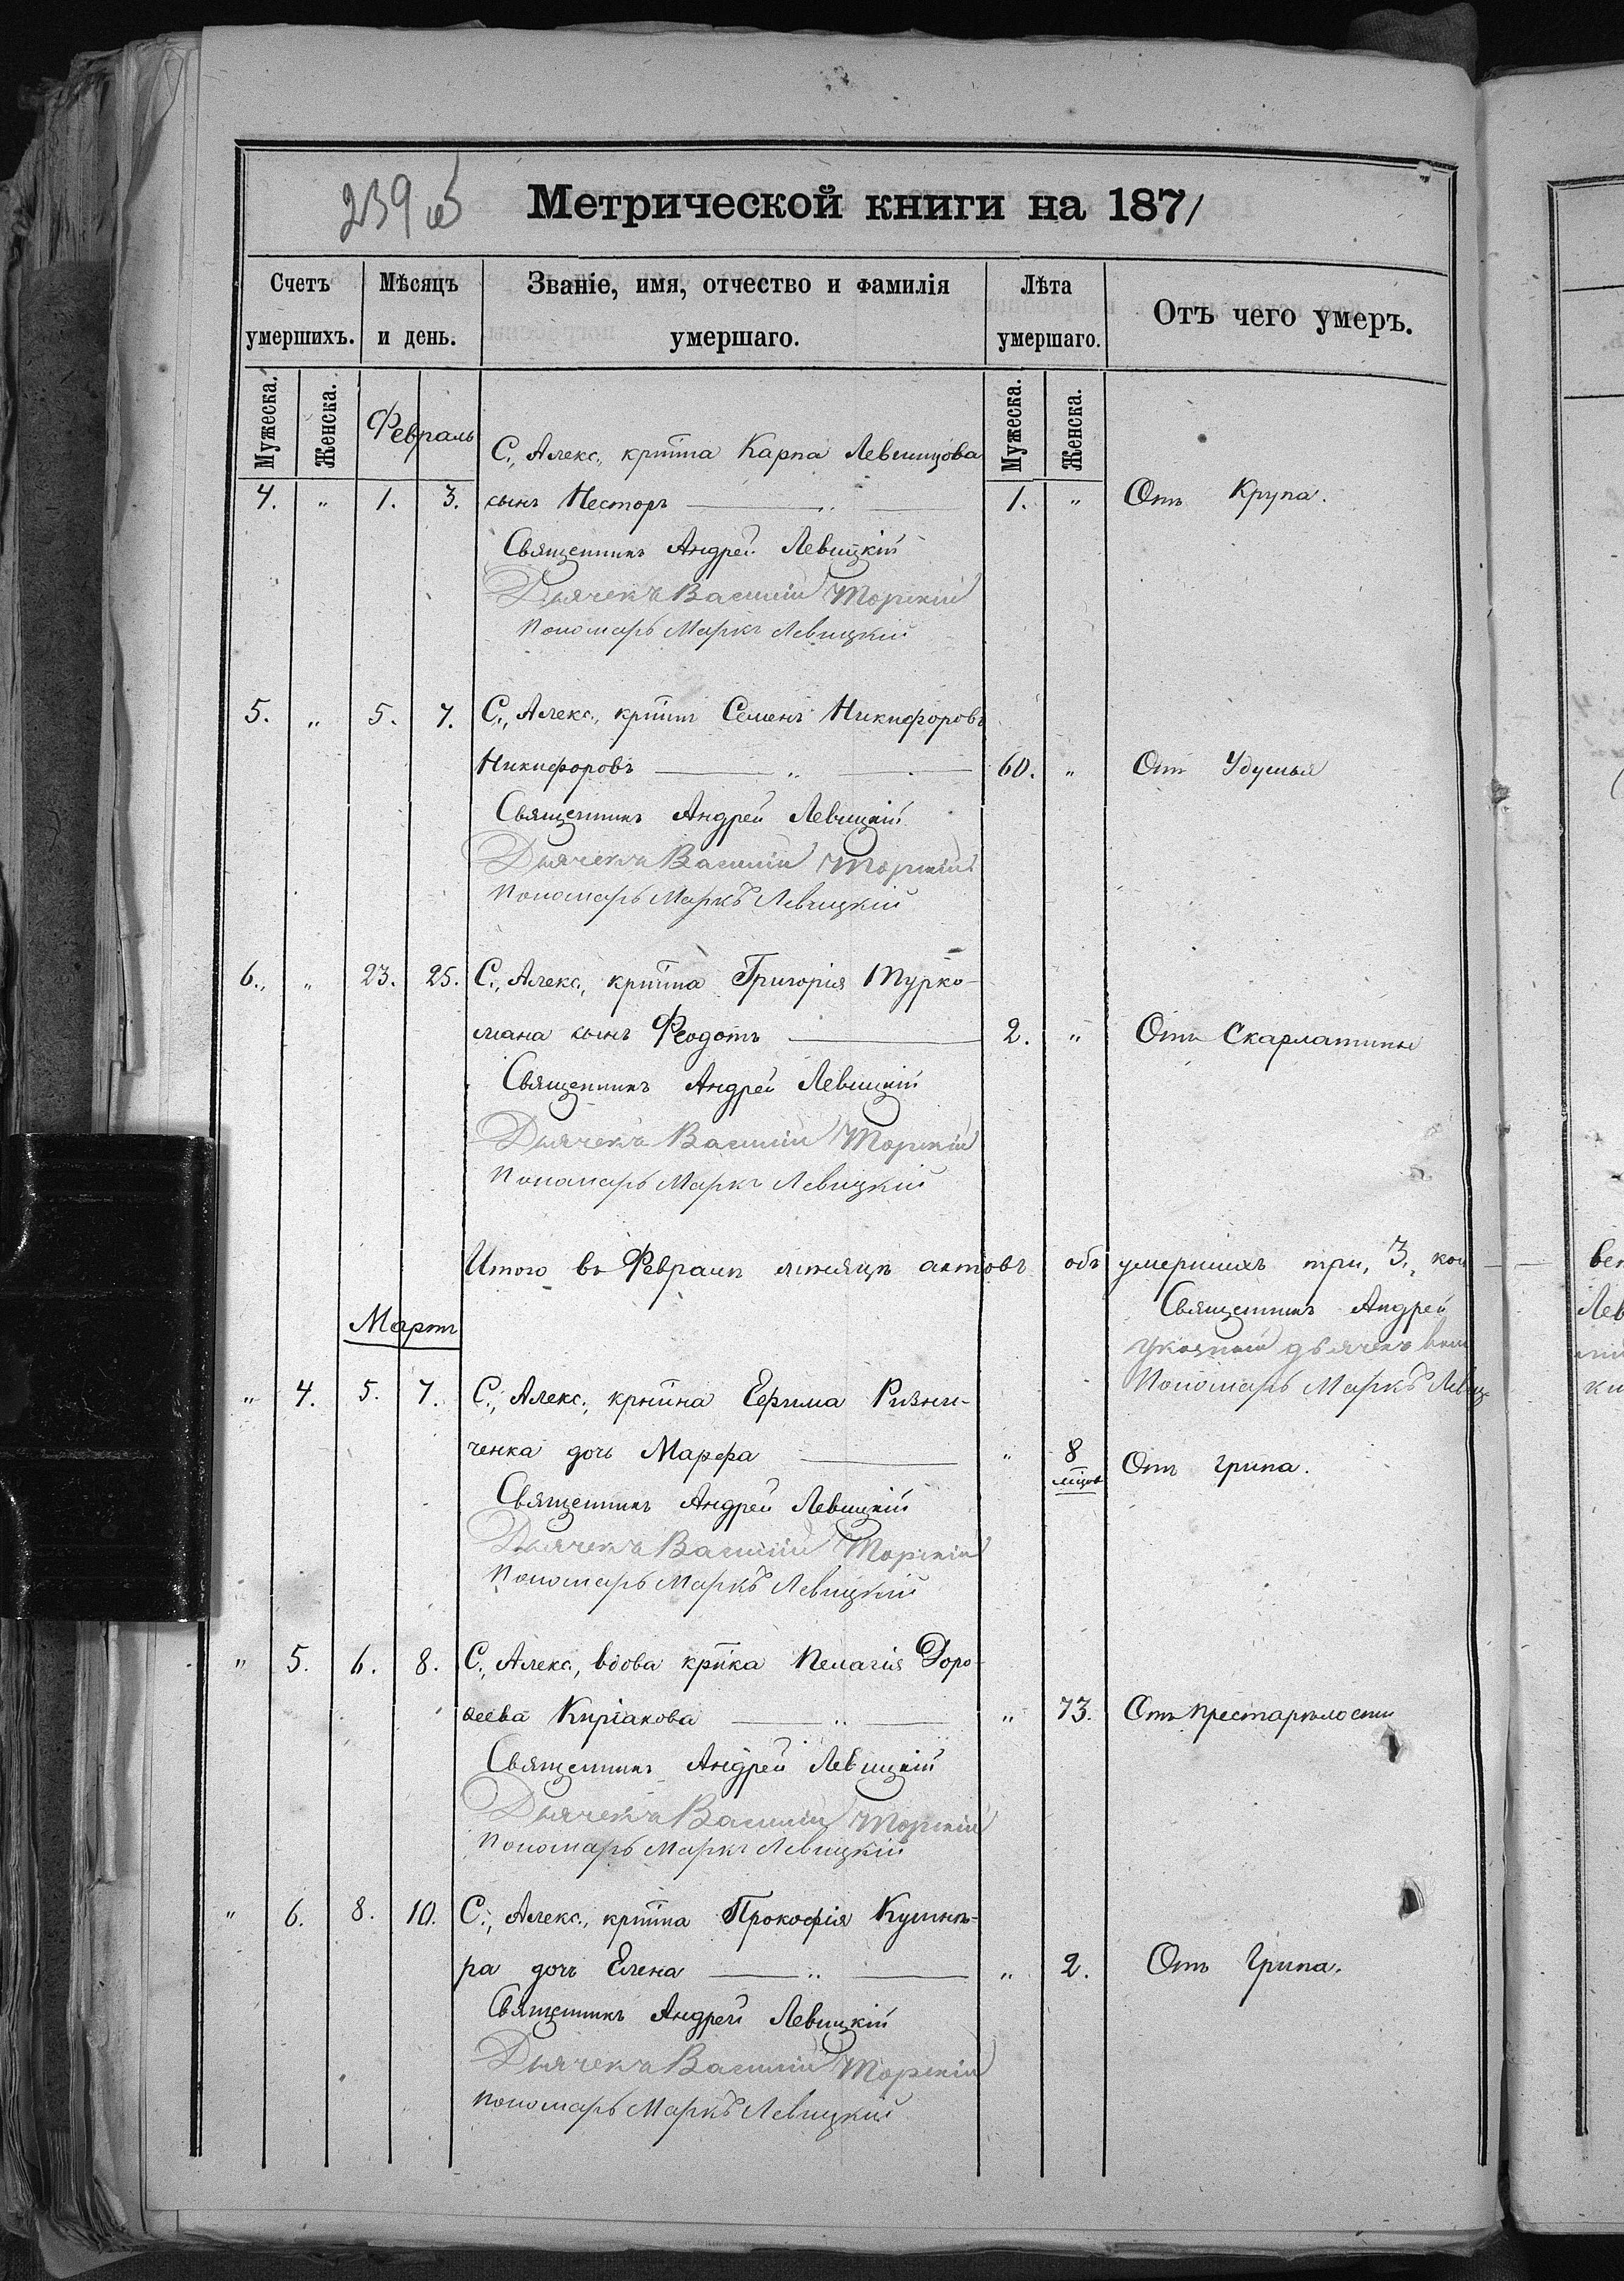 239 об
Метрической книги на 1871
Счетъ умершихъ.
Мѣсяцъ и день.
Званіе, имя, отчество и фамилія умершаго.
Лѣта умершаго.
Отъ чего умеръ.
Мужеска.
Женска.
Февраль
Мужеска.
Женска.
С., Алекс., крптна Карпа Левшицова
4. „ 1. 3. сынъ Несторъ 1. „ Отъ Крупа.
Священникъ Андрей Левицкій
Дьячекъ Василій Торскій
Пономарь Маркъ Левицкій
5. „ 5. 7. С., Алекс., крптнъ Семенъ Никифоровъ
Никифоровъ 60. „ Отъ Удушья
Священникъ Андрей Левицкій
Дьячекъ Василій Торскій
Пономарь Маркъ Левицкій
6. „ 23. 25. С., Алекс., крптна Григорія Турко-
мана сынъ Феодотъ 2. „ Отъ Скарлатины
Священникъ Андрей Левицкій
Дьячекъ Василій Торскій
Пономарь Маркъ Левицкій
Итого въ Февралѣ мѣсяцѣ актовъ объ умершихъ три, 3, кои
Священникъ Андрей
Мартъ
Указный дьячекъ
Пономарь Маркъ Левиц-
„ 4. 5. 7. С., Алекс., крптна Ефима Ризни-
ченка дочь Марфа „ 8 мцовъ Отъ грипа.
Священникъ Андрей Левицкій
Дьячекъ Василій Торскій
Пономарь Маркъ Левицкій
„ 5. 6. 8. С., Алекс., вдова крпка Пелагія Доро-
ѳеева Киріакова „ 73. Отъ престарѣлости
Священникъ Андрей Левицкій
Дьячекъ Василій Торскій
Пономарь Маркъ Левицкій
„ 6. 8. 10. С., Алекс., крптна Прокофія Кушнѣ-
ра дочь Елена „ 2. Отъ Грипа.
Священникъ Андрей Левицкій
Дьячекъ Василій Торскій
Пономарь Маркъ Левицкій